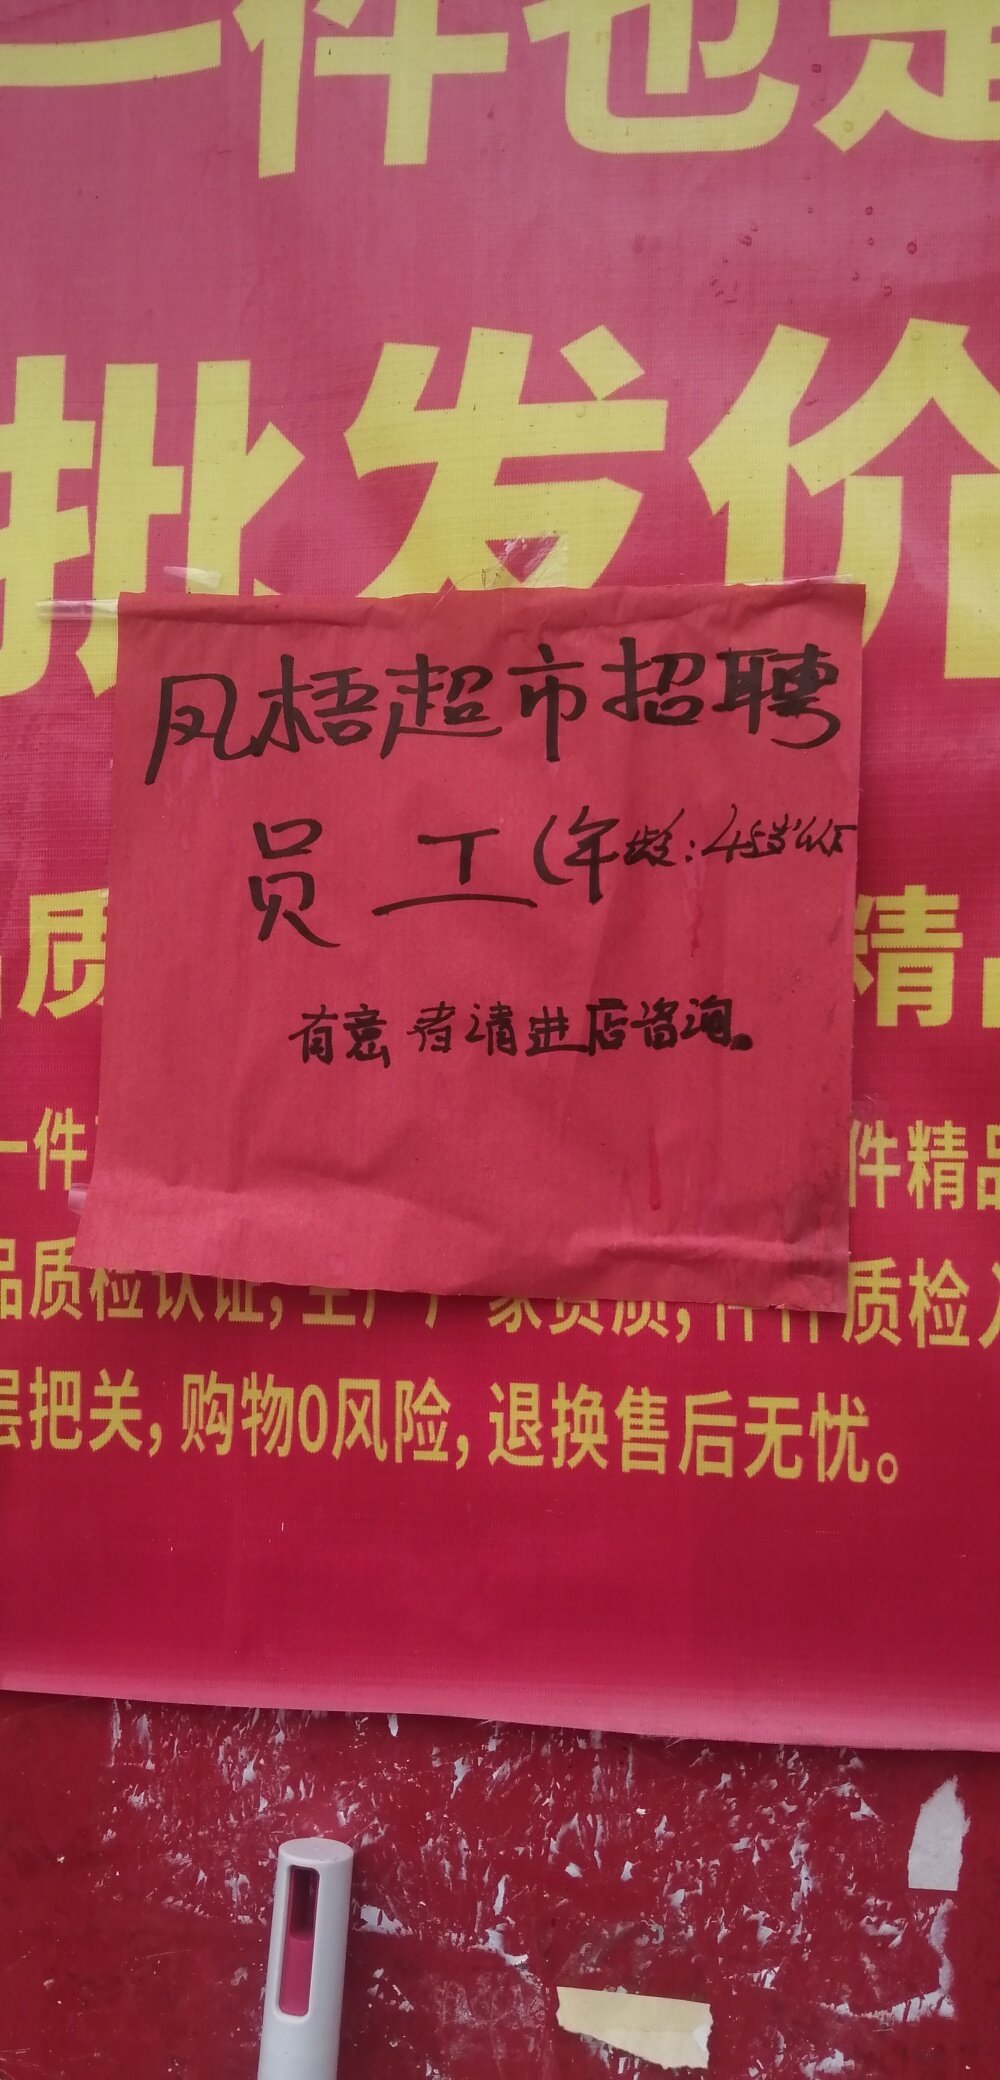 一件也是
批发价
凤梧超市招聘
员工(年龄:45岁以下
有意者请进店咨询。
品质
精品
一件
件精品
品质检认证,生产厂家资质,件件质检入
层把关,购物0风险,退换售后无忧。